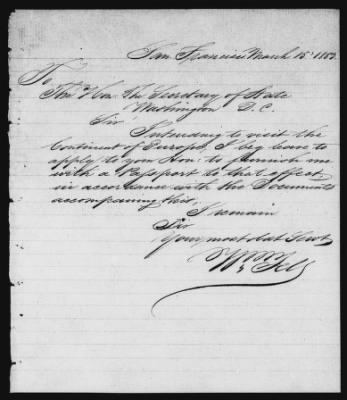 San Francisco March 15th
To
The Hon. The Secretary of State
Washington D.C.
Sir
Intending to visit the
Continent of Europe, I beg leave to
apply to your Hon. to furnish me
with a Passport to that effect
in accordance with the Documents
accompaning this,
I remain
Sir
Your most Obt Servt